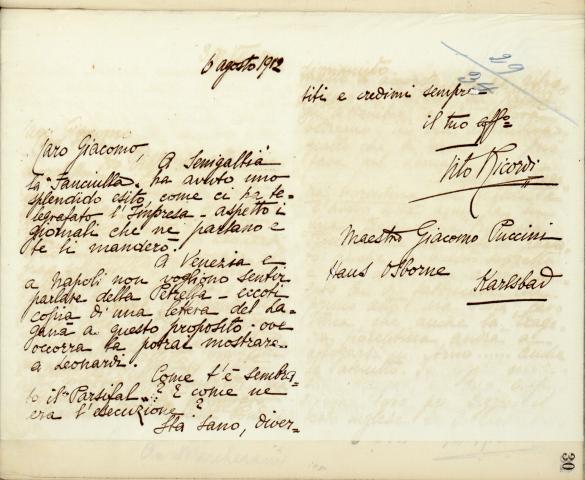 6 agosto 1912
Caro Giacomo,
A Senigallia
la "Fanciulla" ha avuto uno
splendido esito, come ci ha te-
legrafato l'Impresa - aspetto i
giornali che ne parlano e
te li manderò.
A Venezia e
a Napoli non vogliono sentir
parlare della Petrella - eccoti
copia di una lettera del La-
ganà a questo proposito: ove
occorra la potrai mostrare
a Leonardi.
Come t'è sembra-
to il "Parsifal"..? E come ne
era l'esecuzione?
Sta sano, diver-
titi e credimi sempre
il tuo affo
Tito Ricordi
Maestro Giacomo Puccini
Haus Osborne
Karlsbad
30